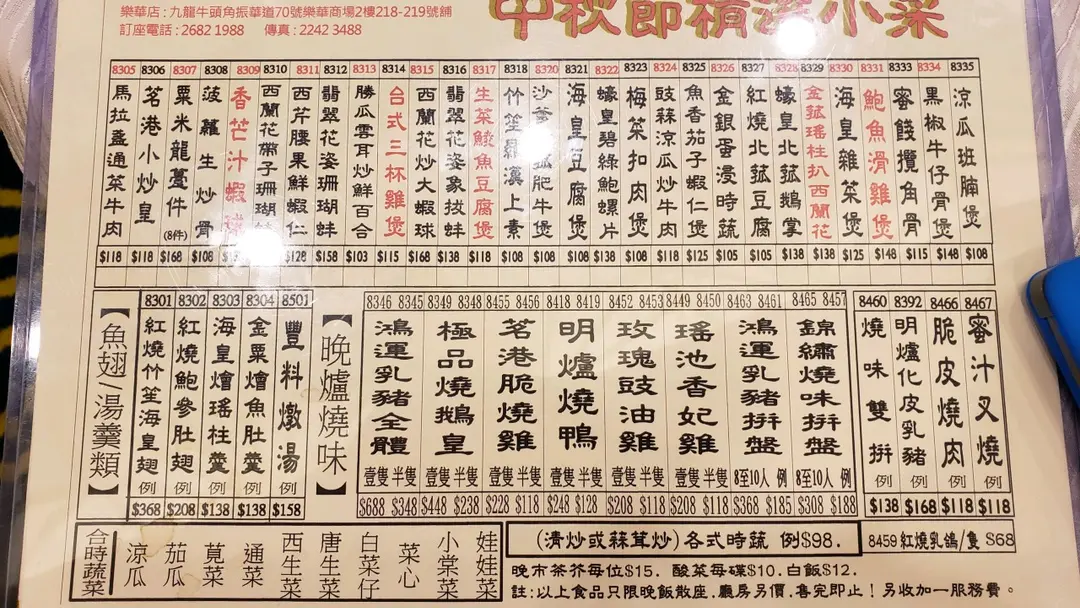 樂華店 : 九龍牛頭角振華道70號樂華商場2樓218-219號舖
訂座電話 : 2682 1988 傳真 : 2242 3488
中秋節精選小菜
8305 8306 8307 8308 8309 8310 8311 8312 8313 8314 8315 8316 8317 8318 8320 8321 8322 8323 8324 8325 8326 8327 8328 8329 8330 8331 8333 8334 8335
馬拉盞通菜牛肉
茗港小炒皇
粟米龍躉件(8件)
菠蘿生炒骨
香芒汁蝦球
西蘭花帶子珊瑚蚌
西芹腰果鮮蝦仁
翡翠花姿珊瑚蚌
勝瓜雲耳炒鮮百合
台式三杯雞煲
西蘭花炒大蝦球
翡翠花姿象拔蚌
生菜鯪魚豆腐煲
竹笙羅漢上素
沙爹菇肥牛煲
海皇豆腐煲
蠔皇碧綠鮑螺片
梅菜扣肉煲
豉蒜涼瓜炒牛肉
魚香茄子蝦仁煲
金銀蛋浸時蔬
紅燒北菇豆腐
蠔皇北菇鵝掌
金菇瑤柱扒西蘭花
海皇雜菜煲
鮑魚滑雞煲
蜜餞欖角骨
黑椒牛仔骨煲
涼瓜班腩煲
$118 $118 $168 $108 $128 $158 $103 $115 $168 $138 $118 $108 $108 $108 $108 $108 $118 $125 $105 $105 $138 $138 $125 $148 $115 $148 $108
【魚翅/湯羹類】
8301 8302 8303 8304 8501
紅燒竹笙海皇翅 例
紅燒鮑參肚翅 例
海皇燴瑤柱羹 例
金粟燴魚肚羹 例
豐料燉湯 例
$368 $208 $138 $138 $158
【晚爐燒味】
8346 8345 8349 8348 8455 8456 8418 8419 8452 8453 8449 8450 8463 8461 8465 8457
鴻運乳豬全體
極品燒鵝皇
茗港脆燒雞
明爐燒鴨
玫瑰豉油雞
瑤池香妃雞
鴻運乳豬拼盤
錦繡燒味拼盤
壹隻 半隻 壹隻 半隻 壹隻 半隻 壹隻 半隻 壹隻 半隻 壹隻 半隻 8至10人 例 8至10人 例
$688 $348 $448 $238 $228 $118 $248 $128 $208 $118 $208 $118 $368 $185 $308 $188
8460 8392 8466 8467
燒味雙拼
明爐化皮乳豬 例
脆皮燒肉 例
蜜汁叉燒 例
$138 $168 $118 $118
合時蔬菜
涼瓜
茄瓜
莧菜
通菜
西生菜
唐生菜
白菜仔
菜心
小棠菜
娃娃菜
(清炒或蒜茸炒) 各式時蔬 例$98.
8459 紅燒乳鴿/隻 $68
晚市茶芥每位$15. 酸菜每碟$10. 白飯$12.
註: 以上食品只限晚飯散座. 廳房另價. 售完即止! 另收加一服務費。